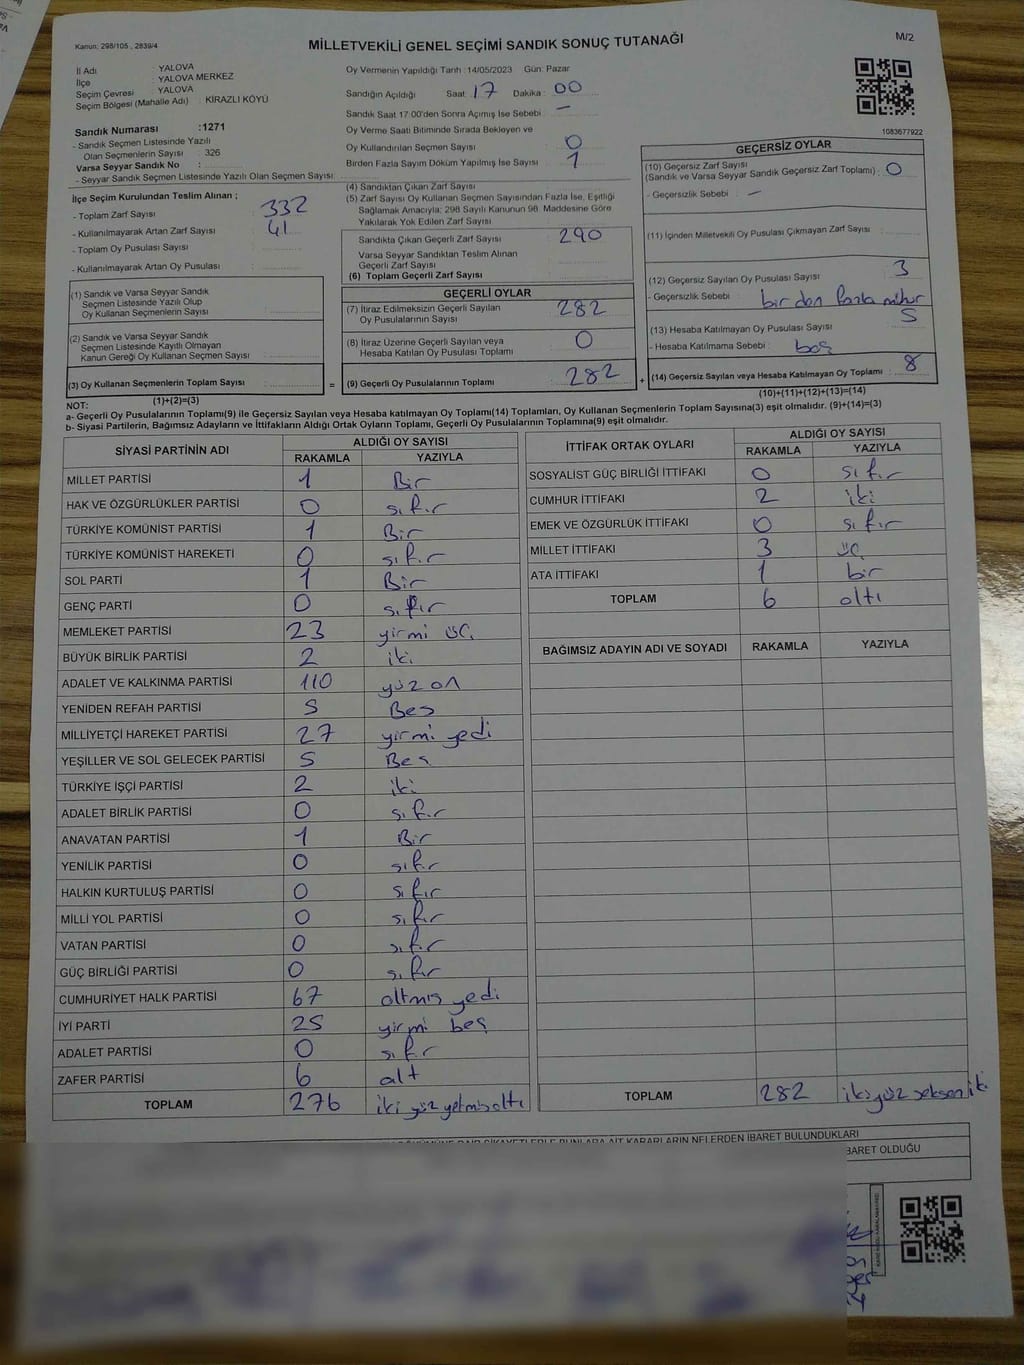 Kanun: 298/105 , 2839/4
MİLLETVEKİLİ GENEL SEÇİMİ SANDIK SONUÇ TUTANAĞI
M/2
İl Adı : YALOVA
İlçe : YALOVA MERKEZ
Seçim Çevresi : YALOVA
Seçim Bölgesi (Mahalle Adı) : KİRAZLI KÖYÜ
Sandık Numarası :1271
- Sandık Seçmen Listesinde Yazılı
Olan Seçmenlerin Sayısı : 326
Varsa Seyyar Sandık No :
- Seyyar Sandık Seçmen Listesinde Yazılı Olan Seçmen Sayısı:
Oy Vermenin Yapıldığı Tarih :14/05/2023 Gün: Pazar
Sandığın Açıldığı Saat: 17 Dakika : 00
Sandık Saat 17:00'den Sonra Açımış İse Sebebi : -
Oy Verme Saati Bitiminde Sırada Bekleyen ve
Oy Kullandırılan Seçmen Sayısı : 0
Birden Fazla Sayım Döküm Yapılmış İse Sayısı : 1
1083677922
İlçe Seçim Kurulundan Teslim Alınan ;
- Toplam Zarf Sayısı : 332
- Kullanılmayarak Artan Zarf Sayısı : 41
- Toplam Oy Pusulası Sayısı :
- Kullanılmayarak Artan Oy Pusulası :
(1) Sandık ve Varsa Seyyar Sandık
Seçmen Listesinde Yazılı Olup
Oy Kullanan Seçmenlerin Sayısı :
(2) Sandık ve Varsa Seyyar Sandık
Seçmen Listesinde Kayıtlı Olmayan
Kanun Gereği Oy Kullanan Seçmen Sayısı :
(3) Oy Kullanan Seçmenlerin Toplam Sayısı :
(1)+(2)=(3)
=
(4) Sandıktan Çıkan Zarf Sayısı :
(5) Zarf Sayısı Oy Kullanan Seçmen Sayısından Fazla İse, Eşitliği
Sağlamak Amacıyla; 298 Sayılı Kanunun 98. Maddesine Göre
Yakılarak Yok Edilen Zarf Sayısı :
Sandıkta Çıkan Geçerli Zarf Sayısı : 290
Varsa Seyyar Sandıktan Teslim Alınan
Geçerli Zarf Sayısı :
(6) Toplam Geçerli Zarf Sayısı :
GEÇERLİ OYLAR
(7) İtiraz Edilmeksizin Geçerli Sayılan
Oy Pusulalarının Sayısı : 282
(8) İtiraz Üzerine Geçerli Sayılan veya
Hesaba Katılan Oy Pusulası Toplamı : 0
(9) Geçerli Oy Pusulalarının Toplamı : 282
+
GEÇERSİZ OYLAR
(10) Geçersiz Zarf Sayısı
(Sandık ve Varsa Seyyar Sandık Geçersiz Zarf Toplamı) : 0
- Geçersizlik Sebebi : -
(11) İçinden Milletvekili Oy Pusulası Çıkmayan Zarf Sayısı :
(12) Geçersiz Sayılan Oy Pusulası Sayısı : 3
- Geçersizlik Sebebi : birden fazla mühür
(13) Hesaba Katılmayan Oy Pusulası Sayısı : 5
- Hesaba Katılmama Sebebi : boş
(14) Geçersiz Sayılan veya Hesaba Katılmayan Oy Toplamı : 8
(10)+(11)+(12)+(13)=(14)
NOT:
a- Geçerli Oy Pusulalarının Toplamı(9) ile Geçersiz Sayılan veya Hesaba katılmayan Oy Toplamı(14) Toplamları, Oy Kullanan Seçmenlerin Toplam Sayısına(3) eşit olmalıdır. (9)+(14)=(3)
b- Siyasi Partilerin, Bağımsız Adayların ve İttifakların Aldığı Ortak Oyların Toplamı, Geçerli Oy Pusulalarının Toplamına(9) eşit olmalıdır.
SİYASİ PARTİNİN ADI ALDIĞI OY SAYISI
RAKAMLA YAZIYLA
MİLLET PARTİSİ 1 Bir
HAK VE ÖZGÜRLÜKLER PARTİSİ 0 sıfır
TÜRKİYE KOMÜNİST PARTİSİ 1 Bir
TÜRKİYE KOMÜNİST HAREKETİ 0 sıfır
SOL PARTİ 1 Bir
GENÇ PARTİ 0 sıfır
MEMLEKET PARTİSİ 23 yirmi üç
BÜYÜK BİRLİK PARTİSİ 2 iki
ADALET VE KALKINMA PARTİSİ 110 yüz on
YENİDEN REFAH PARTİSİ 5 Beş
MİLLİYETÇİ HAREKET PARTİSİ 27 yirmi yedi
YEŞİLLER VE SOL GELECEK PARTİSİ 5 Beş
TÜRKİYE İŞÇİ PARTİSİ 2 iki
ADALET BİRLİK PARTİSİ 0 sıfır
ANAVATAN PARTİSİ 1 Bir
YENİLİK PARTİSİ 0 sıfır
HALKIN KURTULUŞ PARTİSİ 0 sıfır
MİLLİ YOL PARTİSİ 0 sıfır
VATAN PARTİSİ 0 sıfır
GÜÇ BİRLİĞİ PARTİSİ 0 sıfır
CUMHURİYET HALK PARTİSİ 67 altmış yedi
İYİ PARTİ 25 yirmi beş
ADALET PARTİSİ 0 sıfır
ZAFER PARTİSİ 6 altı
TOPLAM 276 iki yüz yetmiş altı
İTTİFAK ORTAK OYLARI ALDIĞI OY SAYISI
RAKAMLA YAZIYLA
SOSYALİST GÜÇ BİRLİĞİ İTTİFAKI 0 sıfır
CUMHUR İTTİFAKI 2 iki
EMEK VE ÖZGÜRLÜK İTTİFAKI 0 sıfır
MİLLET İTTİFAKI 3 üç
ATA İTTİFAKI 1 bir
TOPLAM 6 altı
BAĞIMSIZ ADAYIN ADI VE SOYADI RAKAMLA YAZIYLA
TOPLAM 282 iki yüz seksen iki
DAİR ŞİKAYETLERLE BUNLARA AİT KARARLARIN NELERDEN İBARET BULUNDUKLARI
BARET OLDUĞU